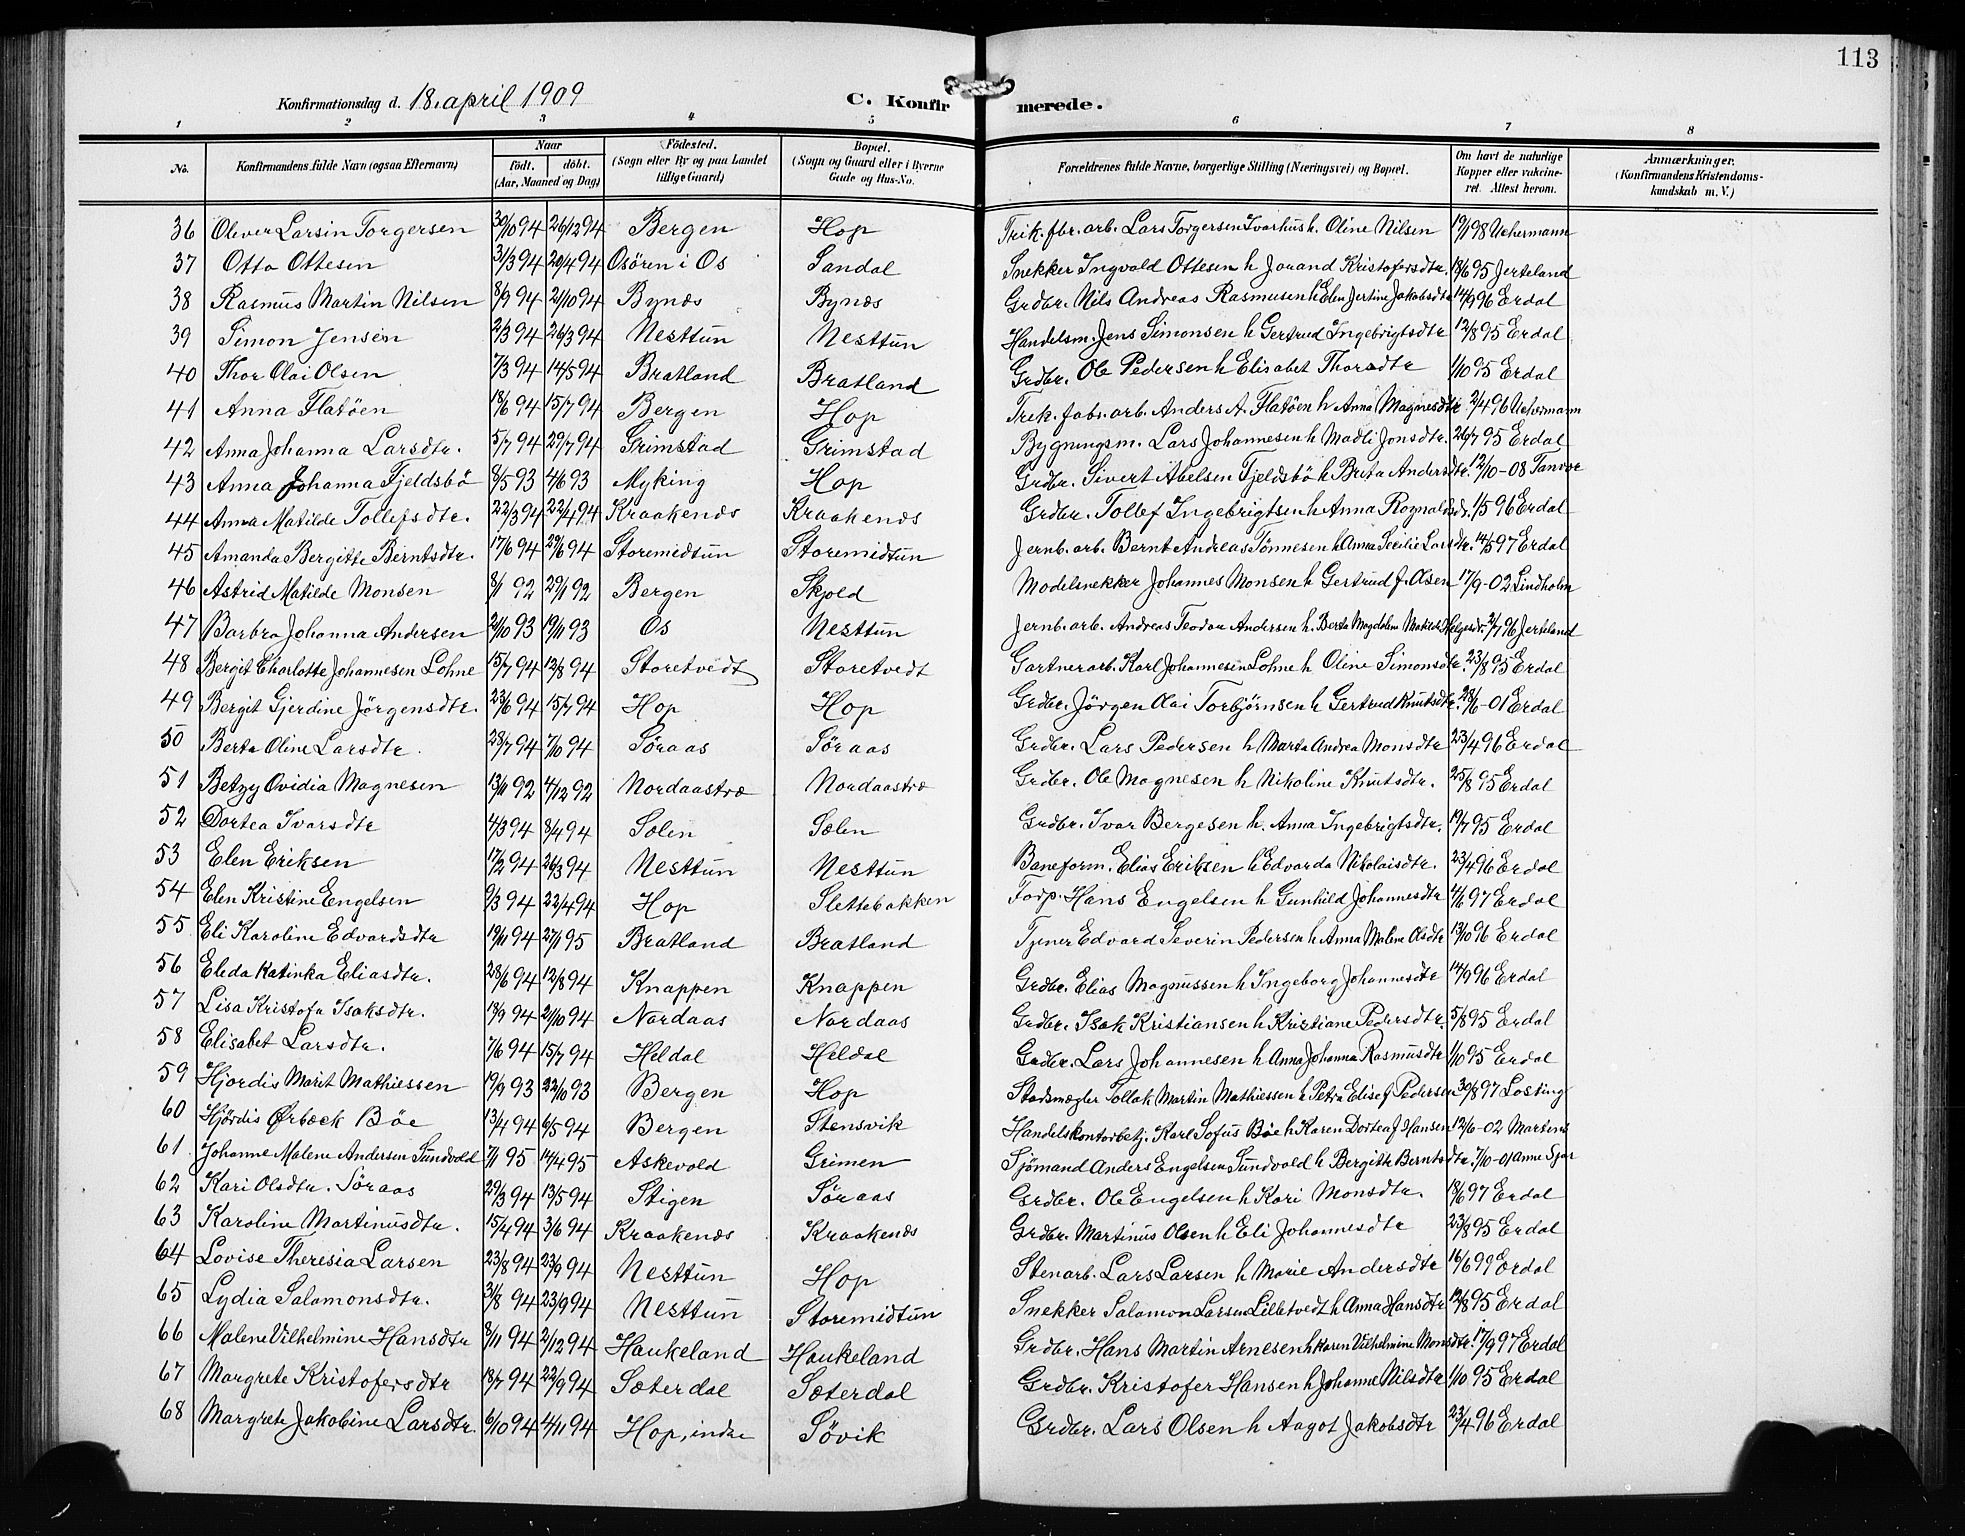 113
Konfirmationsdag d. 18. april 1909 C. Konfirmerede.
1 2 3 4 5 6 7 8
No. Konfirmandens fulde Navn (ogsaa Efternavn) Naar födt. döbt. (Aar, Maaned og Dag) Födested. (Sogn eller By og paa Landet tillige Gaard) Bopæl. (Sogn og Gaard eller i Byerne Gade og Hus-No. Forældrenes fulde Navne, borgerlige Stilling (Næringsvei) og Bopæl. Om havt de naturlige Kopper eller vakcineret. Attest herom. Anmærkninger. (Konfirmandens Kristendomskundskab m. V.)
36 Olever Larsin Torgersen 30/10 94 26/12 94 Bergen Hop Trik. fbr. arb. Lars Torgersen Ivarhus h. Oline Nilsen 19/1 98 Uchermann
37 Otto Ottesen 31/3 94 20/4 94 Osören i Os Sandal Snekker Ingvald Ottesen h Jorand Kristofersdtr. 18/6 95 Jerteland
38 Rasmus Martin Nilsen 8/9 94 21/10 94 Bynes Bynes Grdbr. Nils Andreas Rasmusen h Elen Jertine Jakobsdtr 14/9 96 Erdal
39 Simon Jensen 2/3 94 26/3 94 Nesttun Nesttun Handelsm. Jens Simonsen h Gertrud Ingebrigtsdtr 12/8 95 Erdal
40 Thor Olai Olsen 7/3 94 14/5 94 Bratland Bratland Grdbr. Ole Pedersen h Elisabet Thorsdtr 1/10 95 Erdal
41 Anna Flatöen 18/6 94 15/7 94 Bergen Hop Trek. fabr. arb. Anders A. Flatöen h Anna Magnesdtr 2/4 96 Uchermann
42 Anna Johanna Larsdtr. 5/7 94 29/7 94 Grimstad Grimstad Bygningsm. Lars Johannesen h Madli Jonsdtr. 26/7 95 Erdal
43 Anna Johanna Fjeldsbö 8/5 93 4/6 93 Myking Hop Grdbr. Sivert Abelsen Fjeldsbö h Brita Andersdtr. 12/10-08 Tanvær
44 Anna Matilde Tollefsdtr. 22/3 94 22/4 94 Kraakenes Kraakenes Grdbr. Tollef Ingebrigtsen h Anna Rognaldsdr. 1/5 96 Erdal
45 Amanda Bergitte Berntsdtr. 17/6 94 29/6 94 Storemidtun Storemidtun Jernb. arb. Bernt Andreas Tönnesen h Anna Secilie Larsdtr. 14/5 97 Erdal
46 Astrid Matilde Monsen 8/1 92 29/1 92 Bergen Skjold Modelsnekker Johannes Monsen h Gertrud f. Olsen 17/9-02 Lindholm
47 Barbra Johanna Andersen 2/10 93 19/11 93 Os Nesttun Jernb. arb. Andreas Teodor Andersen h. Berta Magdalene Matilde Helgesdr. 2/7 96 Jerteland
48 Bergit Charlotte Johannesen Lohne 15/7 94 12/8 94 Storetvedt Storetvedt Gartnerarb. Karl Johannesen Lohne h Oline Simonsdtr. 23/8 95 Erdal
49 Bergit Gjerdine Jörgensdtr. 23/6 94 15/7 94 Hop Hop Grdbr. Jörgen Olai Torbjörnsen h Gertrud Knutsdtr. 28/6-01 Erdal
50 Berta Oline Larsdtr. 28/7 94 7/10 94 Söraas Söraas Grdbr. Lars Pedersen h Marta Andrea Monsdtr 23/4 96 Erdal
51 Betzy Ovidia Magnesen 13/11 92 4/12 92 Nordaastræ Nordaastræ Grdbr. Ole Magnesen h Nikoline Knutsdtr. 25/8 95 Erdal
52 Dortea Ivarsdtr 4/3 94 8/4 94 Sælen Sælen Grdbr. Ivar Bergesen h. Anna Ingebrigtsdtr. 19/7 95 Erdal
53 Elen Eriksen 17/2 94 26/3 94 Nesttun Nesttun Baneform. Elias Eriksen h Edvarda Nikolaisdtr. 23/4 96 Erdal
54 Elen Kristine Engelsen 9/3 94 22/4 94 Hop Slettebakken Forp. Hans Engelsen h Gunhild Johannesdtr 4/6 97 Erdal
55 Eli Karoline Edvardsdtr 19/11 94 27/1 95 Bratland Bratland Tjener Edvard Severin Pedersen h Anna Malene Olsdtr 13/10 96 Erdal
56 Eleda Katinka Eliasdtr. 28/6 94 12/8 94 Knappen Knappen Grdbr. Elias Magnussen h Ingeborg Johannesdtr 14/9 96 Erdal
57 Lisa Kristofa Isaksdtr. 18/9 94 21/10 94 Nordaas Nordaas Grdbr. Isak Kristiansen h Kristiane Pedersdtr. 5/8 95 Erdal
58 Elisabet Larsdtr. 7/6 94 15/7 94 Heldal Heldal Grdbr. Lars Johannesen h Anna Johanna Rasmusdtr 1/10 95 Erdal
59 Hjordis Marit Mathiessen 19/9 93 22/10 93 Bergen Hop Stadsmægler Tollak Martin Mathiessen h Petra Elise f Pedersen 30/8 97 Losting
60 Hjördis Ørbæck Böe 13/4 94 6/5 94 Bergen Stensvik Handelskontorbetj. Karl Sofus Böe h Karen Dortea f Hansen 12/6-02 Martens
61 Johanne Malene Andersen Sundvold 7/1 95 14/4 95 Askevold Grimen Sjömand Anders Engelsen Sundvold h Bergitte Berntsdtr. 7/10-01
62 Kari Olsdtr. Söraas 29/3 94 13/5 94 Stigen Söraas Grdbr. Ole Engelsen h Kari Monsdtr. 18/6 97 Erdal
63 Karoline Martinusdtr. 15/4 94 3/6 94 Kraakenes Kraakenes Grdbr. Martinus Olsen h Eli Johannesdtr 23/8 95 Erdal
64 Lovise Theresia Larsen 23/8 94 23/9 94 Nesttun Hop Stenarb. Lars Larsen h Marie Andersdtr 16/6 99 Erdal
65 Lydia Salamonsdtr. 3/8 94 23/9 94 Nesttun Storemidtun Snekker Salamon Larsen Lilletvedt h Anna Hansdtr 12/8 95 Erdal
66 Malene Vilhelmine Hansdtr 8/11 94 2/12 94 Haukeland Haukeland Grdbr. Hans Martin Arnesen h Karen Vilhelmine Monsdtr. 17/9 97 Erdal
67 Margrete Kristofersdtr 18/7 94 22/9 94 Sæterdal Sæterdal Grdbr. Kristofer Hansen h Johanne Nilsdtr 1/10 95 Erdal
68 Margrete Jakobine Larsdtr. 6/10 94 4/11 94 Hop, indre Sövik Grdbr. Lars Olsen h Aagot Jakobsdtr 23/4 96 Erdal